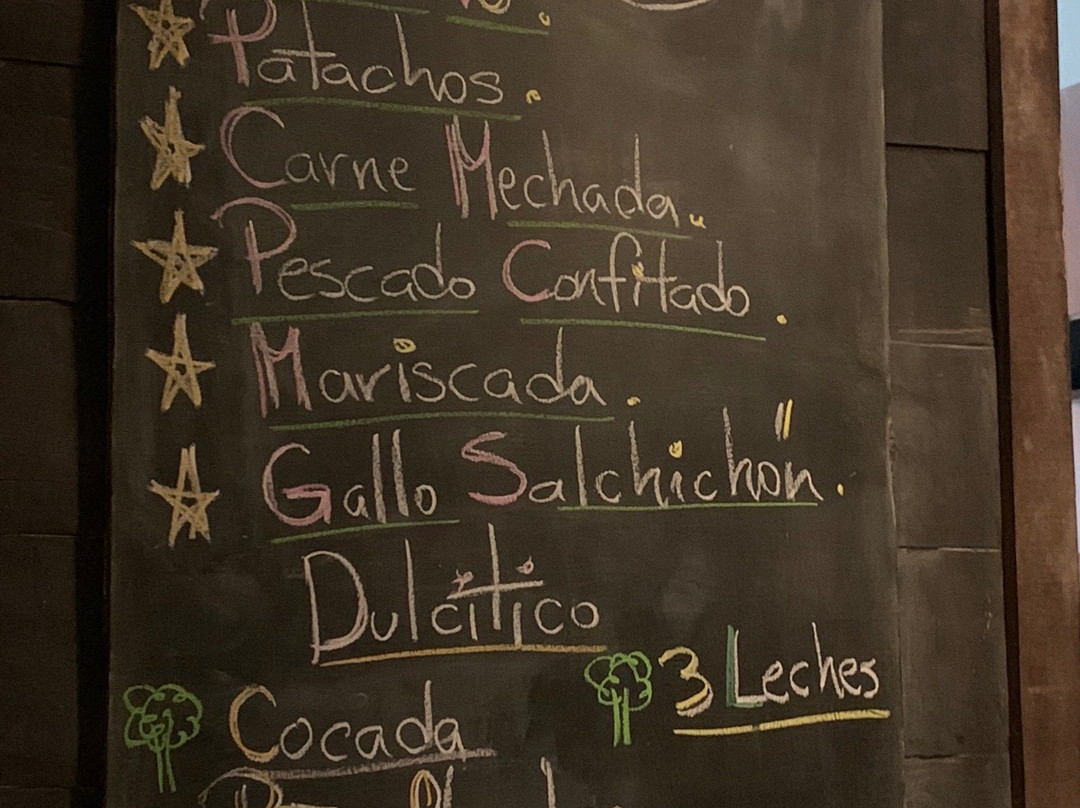 Patachos.
Carne Mechada.
Pescado Confitado.
Mariscada.
Gallo Salchichón.
Dulcitico
3 Leches
Cocada